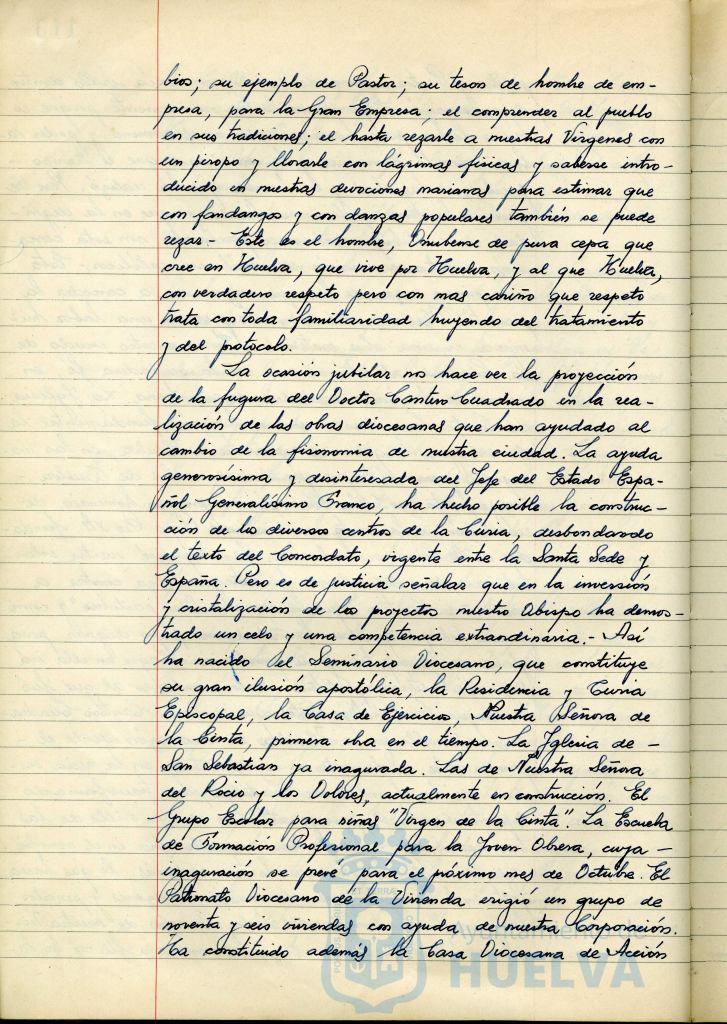 bios; su ejemplo de Pastor; su teson de hombre de em-
presa, para la Gran Empresa; el comprender al pueblo
en sus tradiciones; el hasta rezarle a nuestras Vírgenes con
un piropo y llorarle con lágrimas físicas y saberse intro-
ducido en nuestras devociones marianas para estimar que
con fandangos y con danzas populares también se puede
rezar.- Este es el hombre, Onubense de pura cepa que
cree en Huelva, que vive por Huelva, y al que Huelva,
con verdadero respeto pero con mas cariño que respeto
trata con toda familiaridad huyendo del tratamiento
y del protocolo.
La ocasión jubilar nos hace ver la proyección
de la fugura del Doctor Cantero Cuadrado en la rea-
lización de las obras diocesanas que han ayudado al
cambio de la fisonomia de nuestra ciudad. La ayuda
generosísima y desinteresada del Jefe del Estado Espa-
ñol Generalísimo Franco, ha hecho posible la construc-
ción de los diversos centros de la Curia, desbordando
el texto del Concordato, vigente entre la Santa Sede y
España. Pero es de justicia señalar que en la inversión
y cristalización de los proyectos nuestro Obispo ha demos-
trado un celo y una competencia extraordinaria.- Así
ha nacido el Seminario Diocesano, que constituye
su gran ilusión apostólica, la Residencia y Curia
Episcopal, la Casa de Ejercicios, Nuestra Señora de
la Cinta, primera obra en el tiempo. La Iglesia de -
San Sebastian ya inagurada. Las de Nuestra Señora
del Rocio y los Dolores, actualmente en construcción. El
Grupo Escolar para niñas "Virgen de la Cinta". La Escuela
de Formación Profesional para la Joven Obrera, cuya -
inaguración se prevé para el próximo mes de Octubre. El
Patronato Diocesano de la Vivienda erigió un grupo de
noventa y seis viviendas con ayuda de nuestra Corporación.
Ha constituido además la Casa Diocesana de Acción
Ayuntamiento de
HUELVA